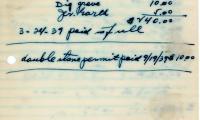 Dig grave 10.00
5.00
$40.00
3-24-39 paid in full
double stone permit paid 9/19/39 $10.00